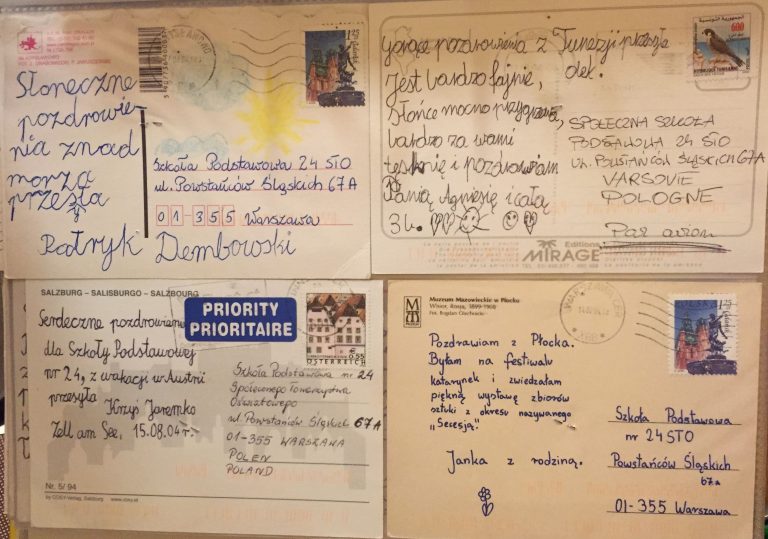 Słoneczne
pozdrowie-
nia znad
morza
przesła
Patryk Dembowski
1,25
Szkoła Podstawowa 24 STO
ul. Powstańców Śląskich 67A
01-355 Warszawa
Gorące pozdrowienia z Tunezji przesyła
Olek.
Jest bardzo fajnie,
słońce mocno przygrzewa,
bardzo za wami
tęsknię i pozdrawiam
Panią Agnisię i całą
3b.
600
REPUBLIQUE TUNISIENNE
SPOŁECZNA SZKOŁA
PODSTAWOWA 24 STO
UL. POWSTAŃCÓW ŚLĄSKICH 67A
VARSOVIE
POLOGNE
Par avion
Editions
MIRAGE
SALZBURG – SALISBURGO – SALZBOURG
PRIORITY
PRIORITAIRE
Serdeczne pozdrowienia
dla Szkoły Podstawowej
nr 24, z wakacji w Austrii
przesyła Krzyś Jaremko
Zell am See, 15.08.04r.
0,55
ÖSTERREICH
Szkoła Podstawowa nr 24
Społecznego Towarzystwa
Oświatowego
ul. Powstańców Śląskich 67A
01-355 WARSZAWA
POLEN
POLAND
Nr. 5/94
by COSY-Verlag, Salzburg www.cosy.at
M
Muzeum Mazowieckie w Płocku
POLSKA
1,25
Pozdrawiam z Płocka.
Byłam na festiwalu
katarynek i zwiedzałam
piękną wystawę zbiorów
sztuki z okresu nazywanego
„Secesją."
Janka z rodziną.
Szkoła Podstawowa
nr 24 STO
Powstańców Śląskich
67a
01-355 Warszawa